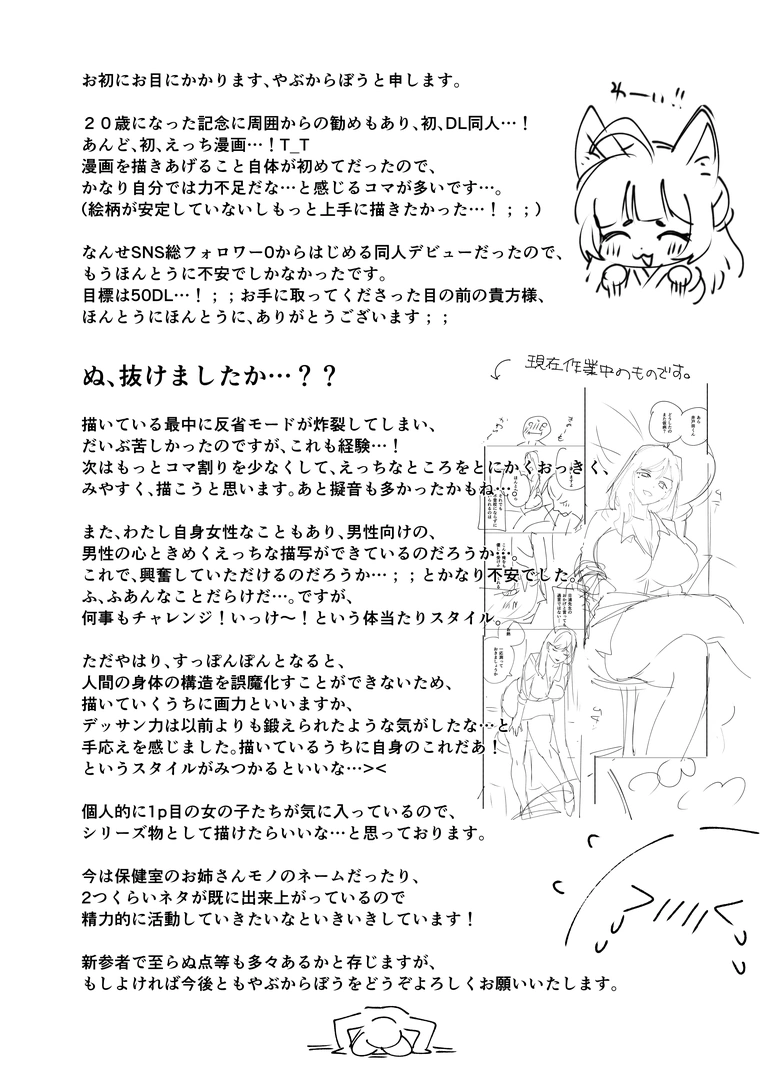 お初にお目にかかります、やぶからぼうと申します。
わーい!!
２０歳になった記念に周囲からの勧めもあり、初、DL同人…！
あんど、初、えっち漫画…！T_T
漫画を描きあげること自体が初めてだったので、
かなり自分では力不足だな…と感じるコマが多いです…。
(絵柄が安定していないしもっと上手に描きたかった…！；；)
なんせSNS総フォロワー0からはじめる同人デビューだったので、
もうほんとうに不安でしかなかったです。
目標は50DL…！；；お手に取ってくださった目の前の貴方様、
ほんとうにほんとうに、ありがとうございます；；
ぬ、抜けましたか…？？
現在作業中のものです。
描いている最中に反省モードが炸裂してしまい、
だいぶ苦しかったのですが、これも経験…！
次はもっとコマ割りを少なくして、えっちなところをとにかくおっきく、
みやすく、描こうと思います。あと擬音も多かったかもね…
また、わたし自身女性なこともあり、男性向けの、
男性の心ときめくえっちな描写ができているのだろうか…。
これで、興奮していただけるのだろうか…；；とかなり不安でした。
ふ、ふあんなことだらけだ…。ですが、
何事もチャレンジ！いっけ〜！という体当たりスタイル。
ただやはり、すっぽんぽんとなると、
人間の身体の構造を誤魔化すことができないため、
描いていくうちに画力といいますか、
デッサン力は以前よりも鍛えられたような気がしたな…と
手応えを感じました。描いているうちに自身のこれだあ！
というスタイルがみつかるといいな…><
個人的に1p目の女の子たちが気に入っているので、
シリーズ物として描けたらいいな…と思っております。
今は保健室のお姉さんモノのネームだったり、
2つくらいネタが既に出来上がっているので
精力的に活動していきたいなといきいきしています！
新参者で至らぬ点等も多々あるかと存じますが、
もしよければ今後ともやぶからぼうをどうぞよろしくお願いいたします。